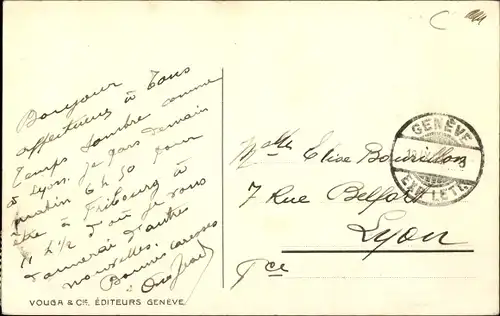 Bonjour
affectueux à Tous
Temps sombre comme
à Lyon. Je pars demain
matin 6 h 50 pour
être à Fribourg à
11 h 1/2 d'où je vous
donnerai d'autres
nouvelles.
Bonnes caresses
VOUGA & CIE. ÉDITEURS GENÈVE
GENÈVE
EXP. LETT.
Mlle Elise
7 Rue Belfort
Lyon
Fce